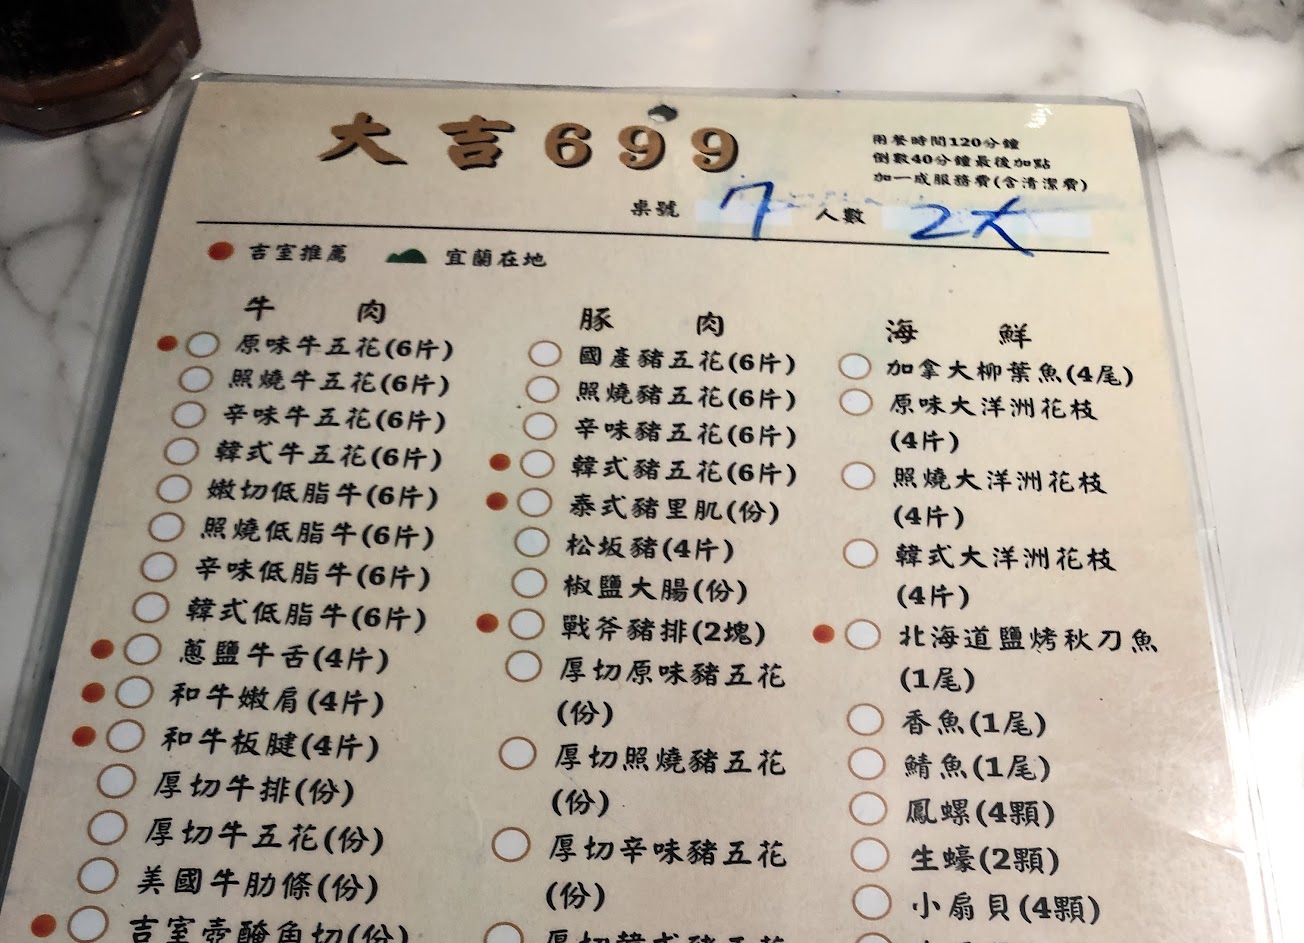 大吉699
用餐時間120分鐘
倒數40分鐘最後加點
加一成服務費(含清潔費)
桌號 7 人數 2大
吉室推薦 宜蘭在地
牛肉
原味牛五花(6片)
照燒牛五花(6片)
辛味牛五花(6片)
韓式牛五花(6片)
嫩切低脂牛(6片)
照燒低脂牛(6片)
辛味低脂牛(6片)
韓式低脂牛(6片)
蔥鹽牛舌(4片)
和牛嫩肩(4片)
和牛板腱(4片)
厚切牛排(份)
厚切牛五花(份)
美國牛肋條(份)
吉室壺醃角切(份)
豚肉
國產豬五花(6片)
照燒豬五花(6片)
辛味豬五花(6片)
韓式豬五花(6片)
泰式豬里肌(份)
松坂豬(4片)
椒鹽大腸(份)
戰斧豬排(2塊)
厚切原味豬五花
(份)
厚切照燒豬五花
(份)
厚切辛味豬五花
(份)
厚切韓式豬五花
海鮮
加拿大柳葉魚(4尾)
原味大洋洲花枝
(4片)
照燒大洋洲花枝
(4片)
韓式大洋洲花枝
(4片)
北海道鹽烤秋刀魚
(1尾)
香魚(1尾)
鯖魚(1尾)
鳳螺(4顆)
生蠔(2顆)
小扇貝(4顆)